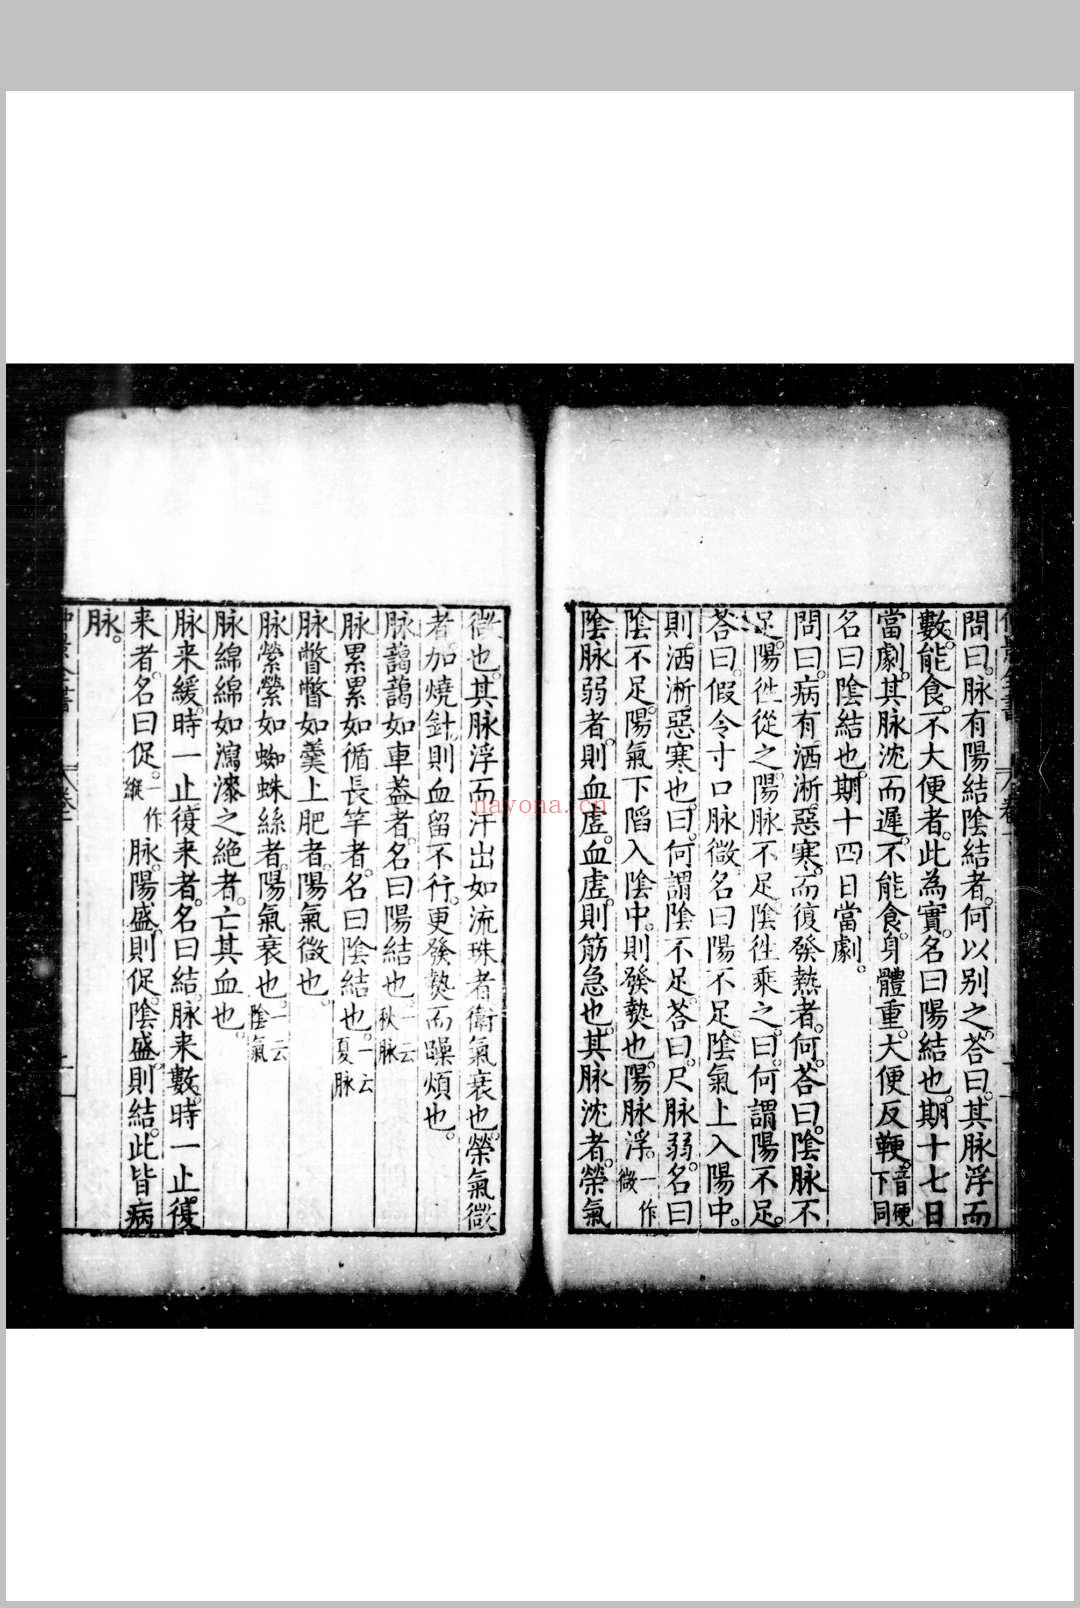 問曰。脉有陽結陰結者。何以别之。荅曰。其脉浮而
數。能食。不大便者。此為實。名曰陽結也。期十七日
當劇。其脉沈而遲。不能食。身體重。大便反鞕。音硬下同
名曰陰結也。期十四日當劇。
問曰。病有洒淅。惡寒。而復發熱者。何。荅曰。陰脉不
足。陽徃從之。陽脉不足。陰徃乘之。曰。何謂陽不足。
荅曰。假令寸口脉微。名曰陽不足。陰氣上入陽中。
則。洒淅。惡寒也。曰。何謂陰不足。荅曰。尺脉弱。名曰
陰不足。陽氣下陷入陰中。則發熱也。陽脉浮。一作微
陰脉弱者。則血虛。血虛。則筋急也。其脉沈者。榮氣
微也。其脉浮而汗出如流珠者。衛氣衰也。榮氣微
者。加燒針。則血留不行。更發熱而躁煩也。
脉藹藹如車蓋者。名曰陽結也。一云秋脉
脉累累如循長竿者。名曰陰結也。一云夏脉
脉瞥瞥如羹上肥者。陽氣微也。
脉縈縈如蜘蛛絲者。陽氣衰也。一云陰氣
脉綿綿如瀉漆之絶者。亡其血也。
脉来緩。時一止復来者。名曰結。脉来數。時一止復
来者。名曰促。一作縱脉。陽盛。則促。陰盛。則結。此皆病
脉。
nayona.cn